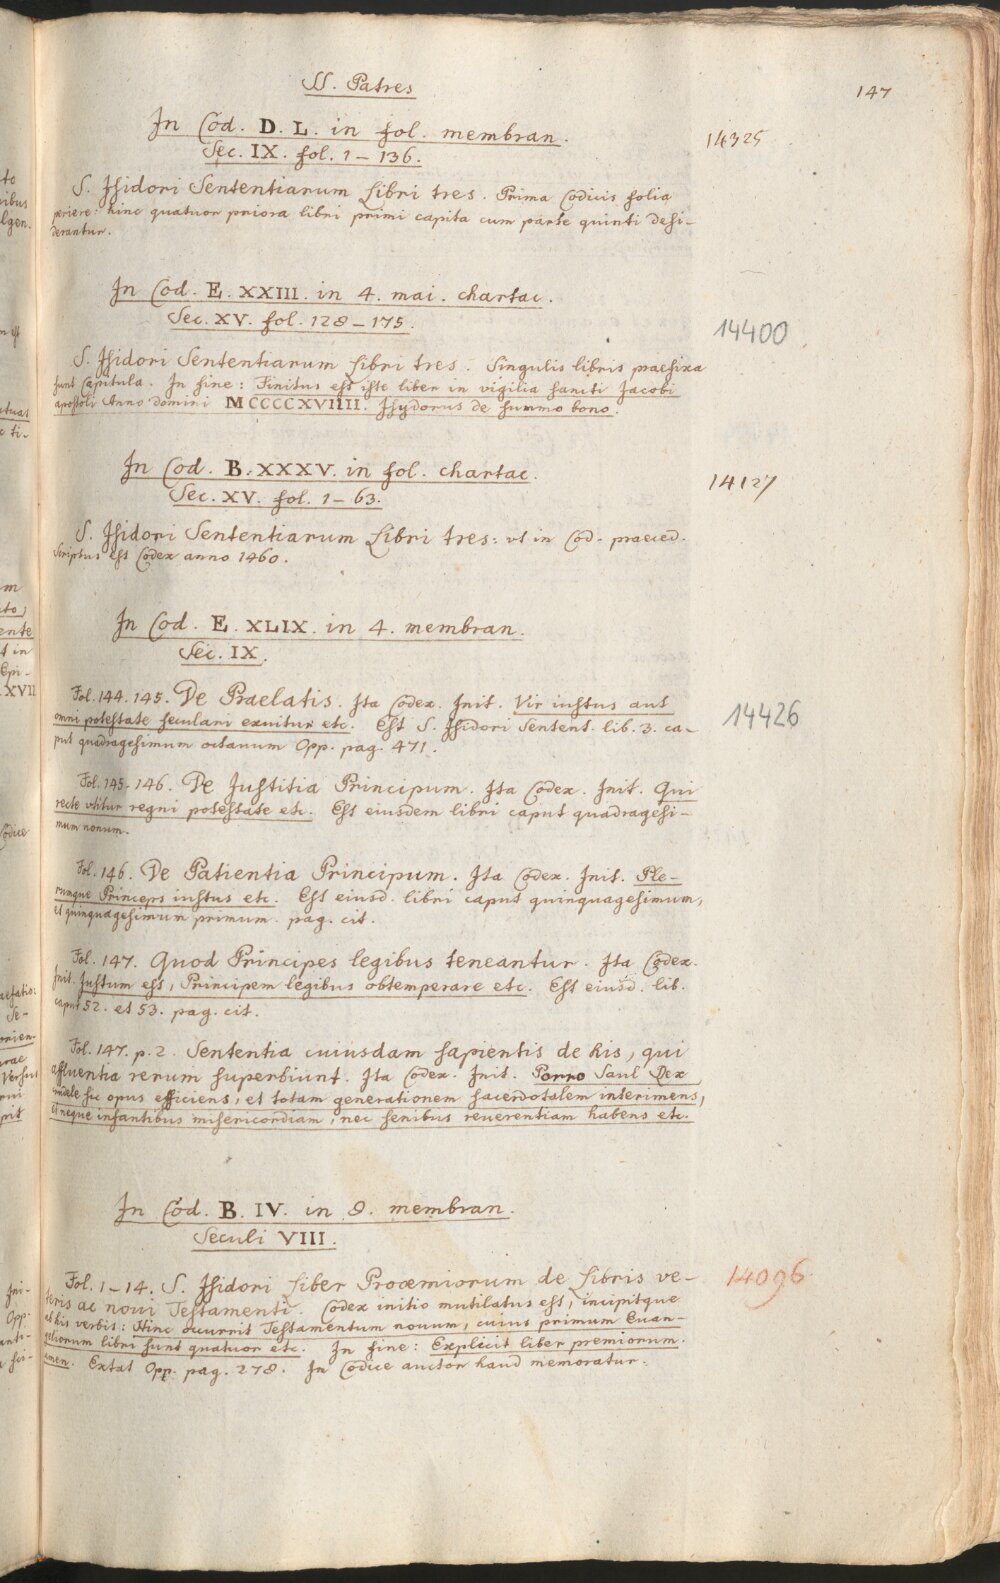 SS. Patres
147
In Cod. D. L. in fol. membran.
14325
Sec. IX. fol. 1 – 136.
S. Isidori Sententiarum Libri tres. Prima Codicis folia
periere: hinc quatuor priora libri primi capita cum parte quinti desi-
derantur.
In Cod. E. XXIII. in 4. mai. chartac.
Sec. XV. fol. 128 – 175.
14400
S. Isidori Sententiarum Libri tres. Singulis libris praefixa
sunt Capitula. In fine: Finitus est iste liber in vigilia sancti Jacobi
apostoli Anno domini MCCCCXVIIII. Isydorus de summo bono.
In Cod. B. XXXV. in fol. chartac.
14127
Sec. XV. fol. 1 – 63.
S. Isidori Sententiarum Libri tres: ut in Cod. praeced.
Scriptus est Codex anno 1460.
In Cod. E. XLIX. in 4. membran.
Sec. IX.
Fol. 144. 145. De Praelatis. Ita Codex. Init. Vir iustus aut
14426
omni potestate seculari exuitur etc. Est S. Isidori Sentent. lib. 3. ca-
put quadragesimum octavum Opp. pag. 471.
Fol. 145. 146. De Justitia Principum. Ita Codex. Init. Qui
recte utitur regni potestate etc. Est eiusdem libri caput quadragesi-
mum nonum.
Fol. 146. De Patientia Principum. Ita Codex. Init. Ple-
rumque Princeps iustus etc. Est eiusd. libri caput quinquagesimum,
et quinquagesimum primum. pag. cit.
Fol. 147. Quod Principes legibus teneantur. Ita Codex.
Init. Justum est, Principem legibus obtemperare etc. Est eiusd. lib.
caput 52. et 53. pag. cit.
Fol. 147. p. 2. Sententia cuiusdam sapientis de his, qui
affluentia rerum superbiunt. Ita Codex. Init. Porro Saul Rex
crudele hic opus efficiens, et totam generationem sacerdotalem interimens,
et neque infantibus misericordiam, nec senibus reuerentiam habens etc.
In Cod. B. IV. in 8. membran.
Seculi VIII.
Fol. 1 – 14. S. Isidori Liber Prooemiorum de Libris ve-
14096
teris ac noui Testamenti. Codex initio mutilatus est, incipitque
ab his verbis: Hinc occurrit Testamentum nouum, cuius primum Euan-
geliorum libri sunt quatuor etc. In fine: Explicit liber premiorum.
amen. Extat Opp. pag. 278. In Codice auctor haud memoratur.